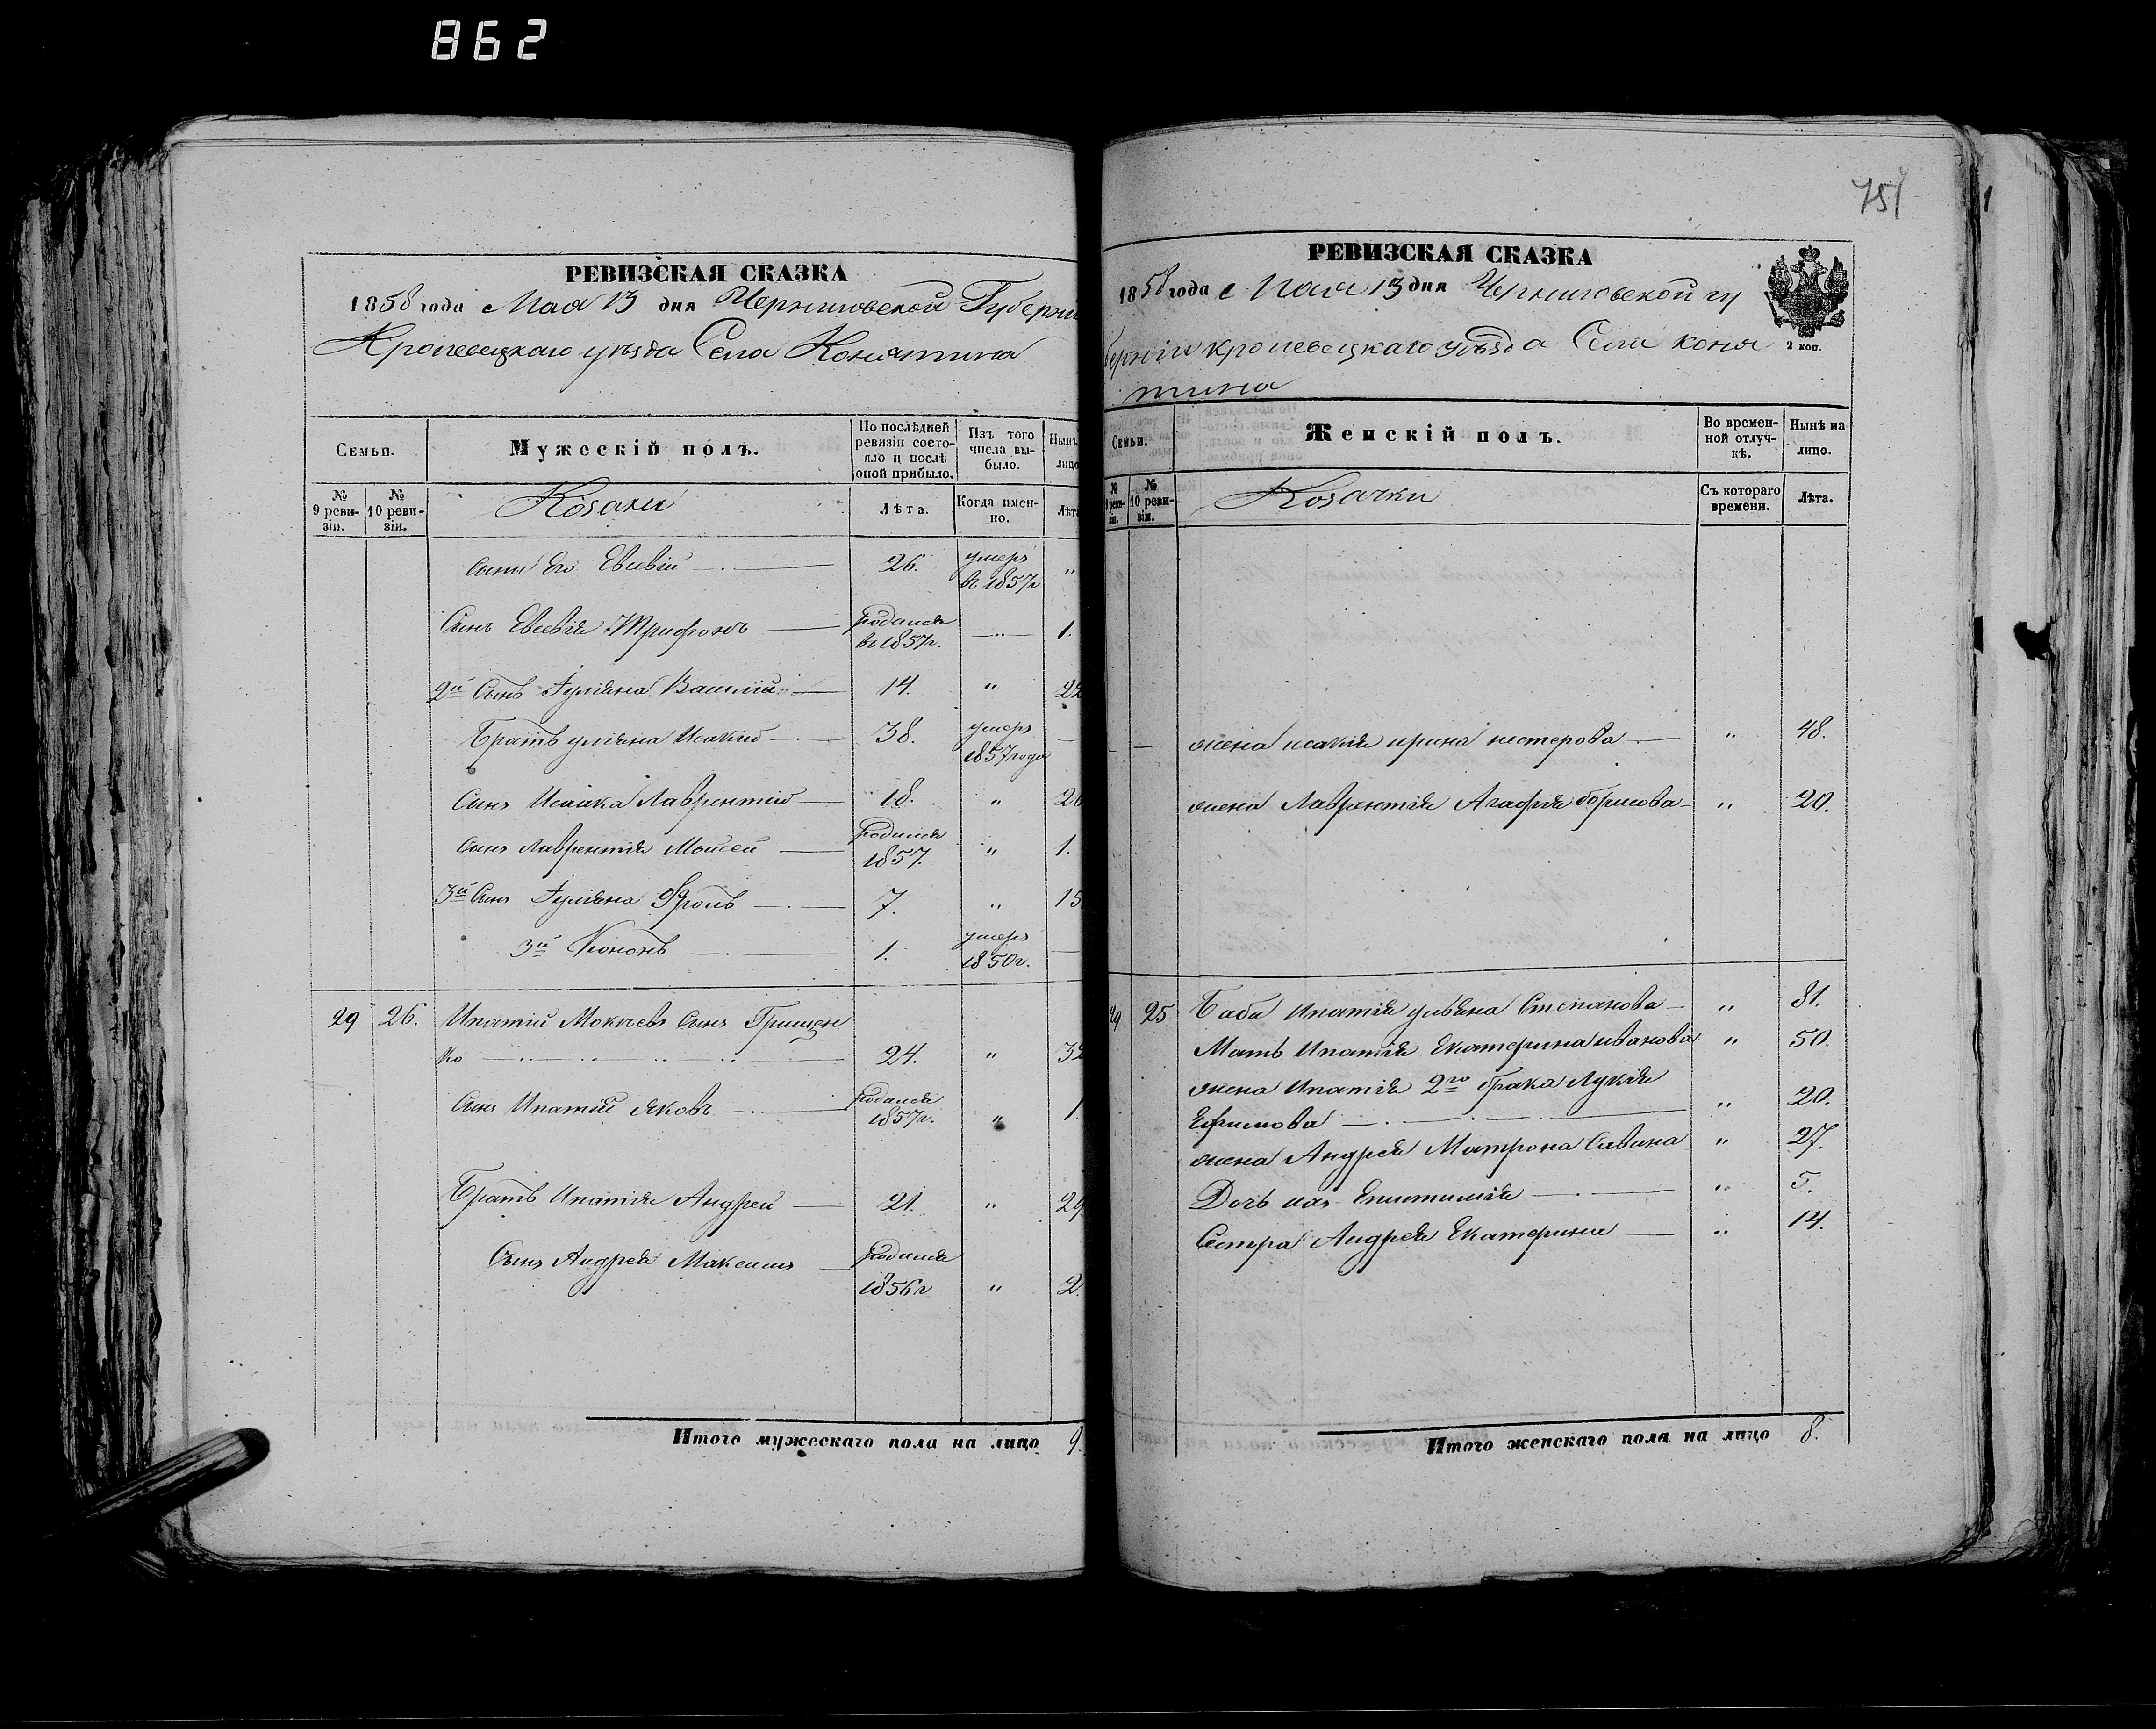 862
751
РЕВИЗСКАЯ СКАЗКА
1858 года Мая 13 дня Черниговской Губерніи
Кролевецкаго уѣзда Села Конятина
Семьи.
Мужескій полъ.
По послѣдней ревизіи состояло и послѣ оной прибыло.
Изъ того числа выбыло.
Нынѣ
лицо
№ 9 ревизіи.
№ 10 ревизіи.
Козаки
Лѣта.
Когда именно.
Лѣта
сынъ его Евсевій 26. умеръ въ 1857г "
Сынъ Евсевія Трифонъ родился въ 1857г. " 1.
2й Сынъ Іуліяна Василій 14. " 22
Братъ уліяна Исакій 38. умеръ 1857 года
Сынъ Исаака Лаврентій 18. " 26
Сынъ Лаврентія Моисей родился 1857. " 1.
3й Сынъ Іуліяна Фролъ 7. " 15
3й Кононъ 1. умеръ 1850г.
29 26. Ипатій Мокіевъ Сынъ Грищен
ко 24. " 32
Сынъ Ипатій Яковъ родился 1857г. " 1.
Братъ Ипатія Андрей 21. " 29
Сынъ Андрея Максимъ родился 1856г " 2.
Итого мужескаго пола на лицо 9.
РЕВИЗСКАЯ СКАЗКА
1858 года Мая 13 дня Черниговской гу
берніи кролевецкаго уѣзда Села коня
тина
2 коп.
Семьи.
Женскій полъ.
Во временной отлучкѣ.
Нынѣ на лицо.
№ 9 ревизіи.
№ 10 ревизіи.
Козачки
Съ котораго времени.
Лѣта.
жена исакія ирина нестерова " 48.
жена Лаврентія Агафія борисова " 20.
29 25 Баба Ипатія уліяна Степанова " 81.
Мать Ипатія Екатерина иванова " 50.
жена Ипатія 2го брака Лукія
Ефимова " 20.
жена Андрея Матрона Савина " 27.
Дочь ихъ Епистимія " 5.
Сестра Андрея Екатерина " 14.
Итого женскаго пола на лицо 8.